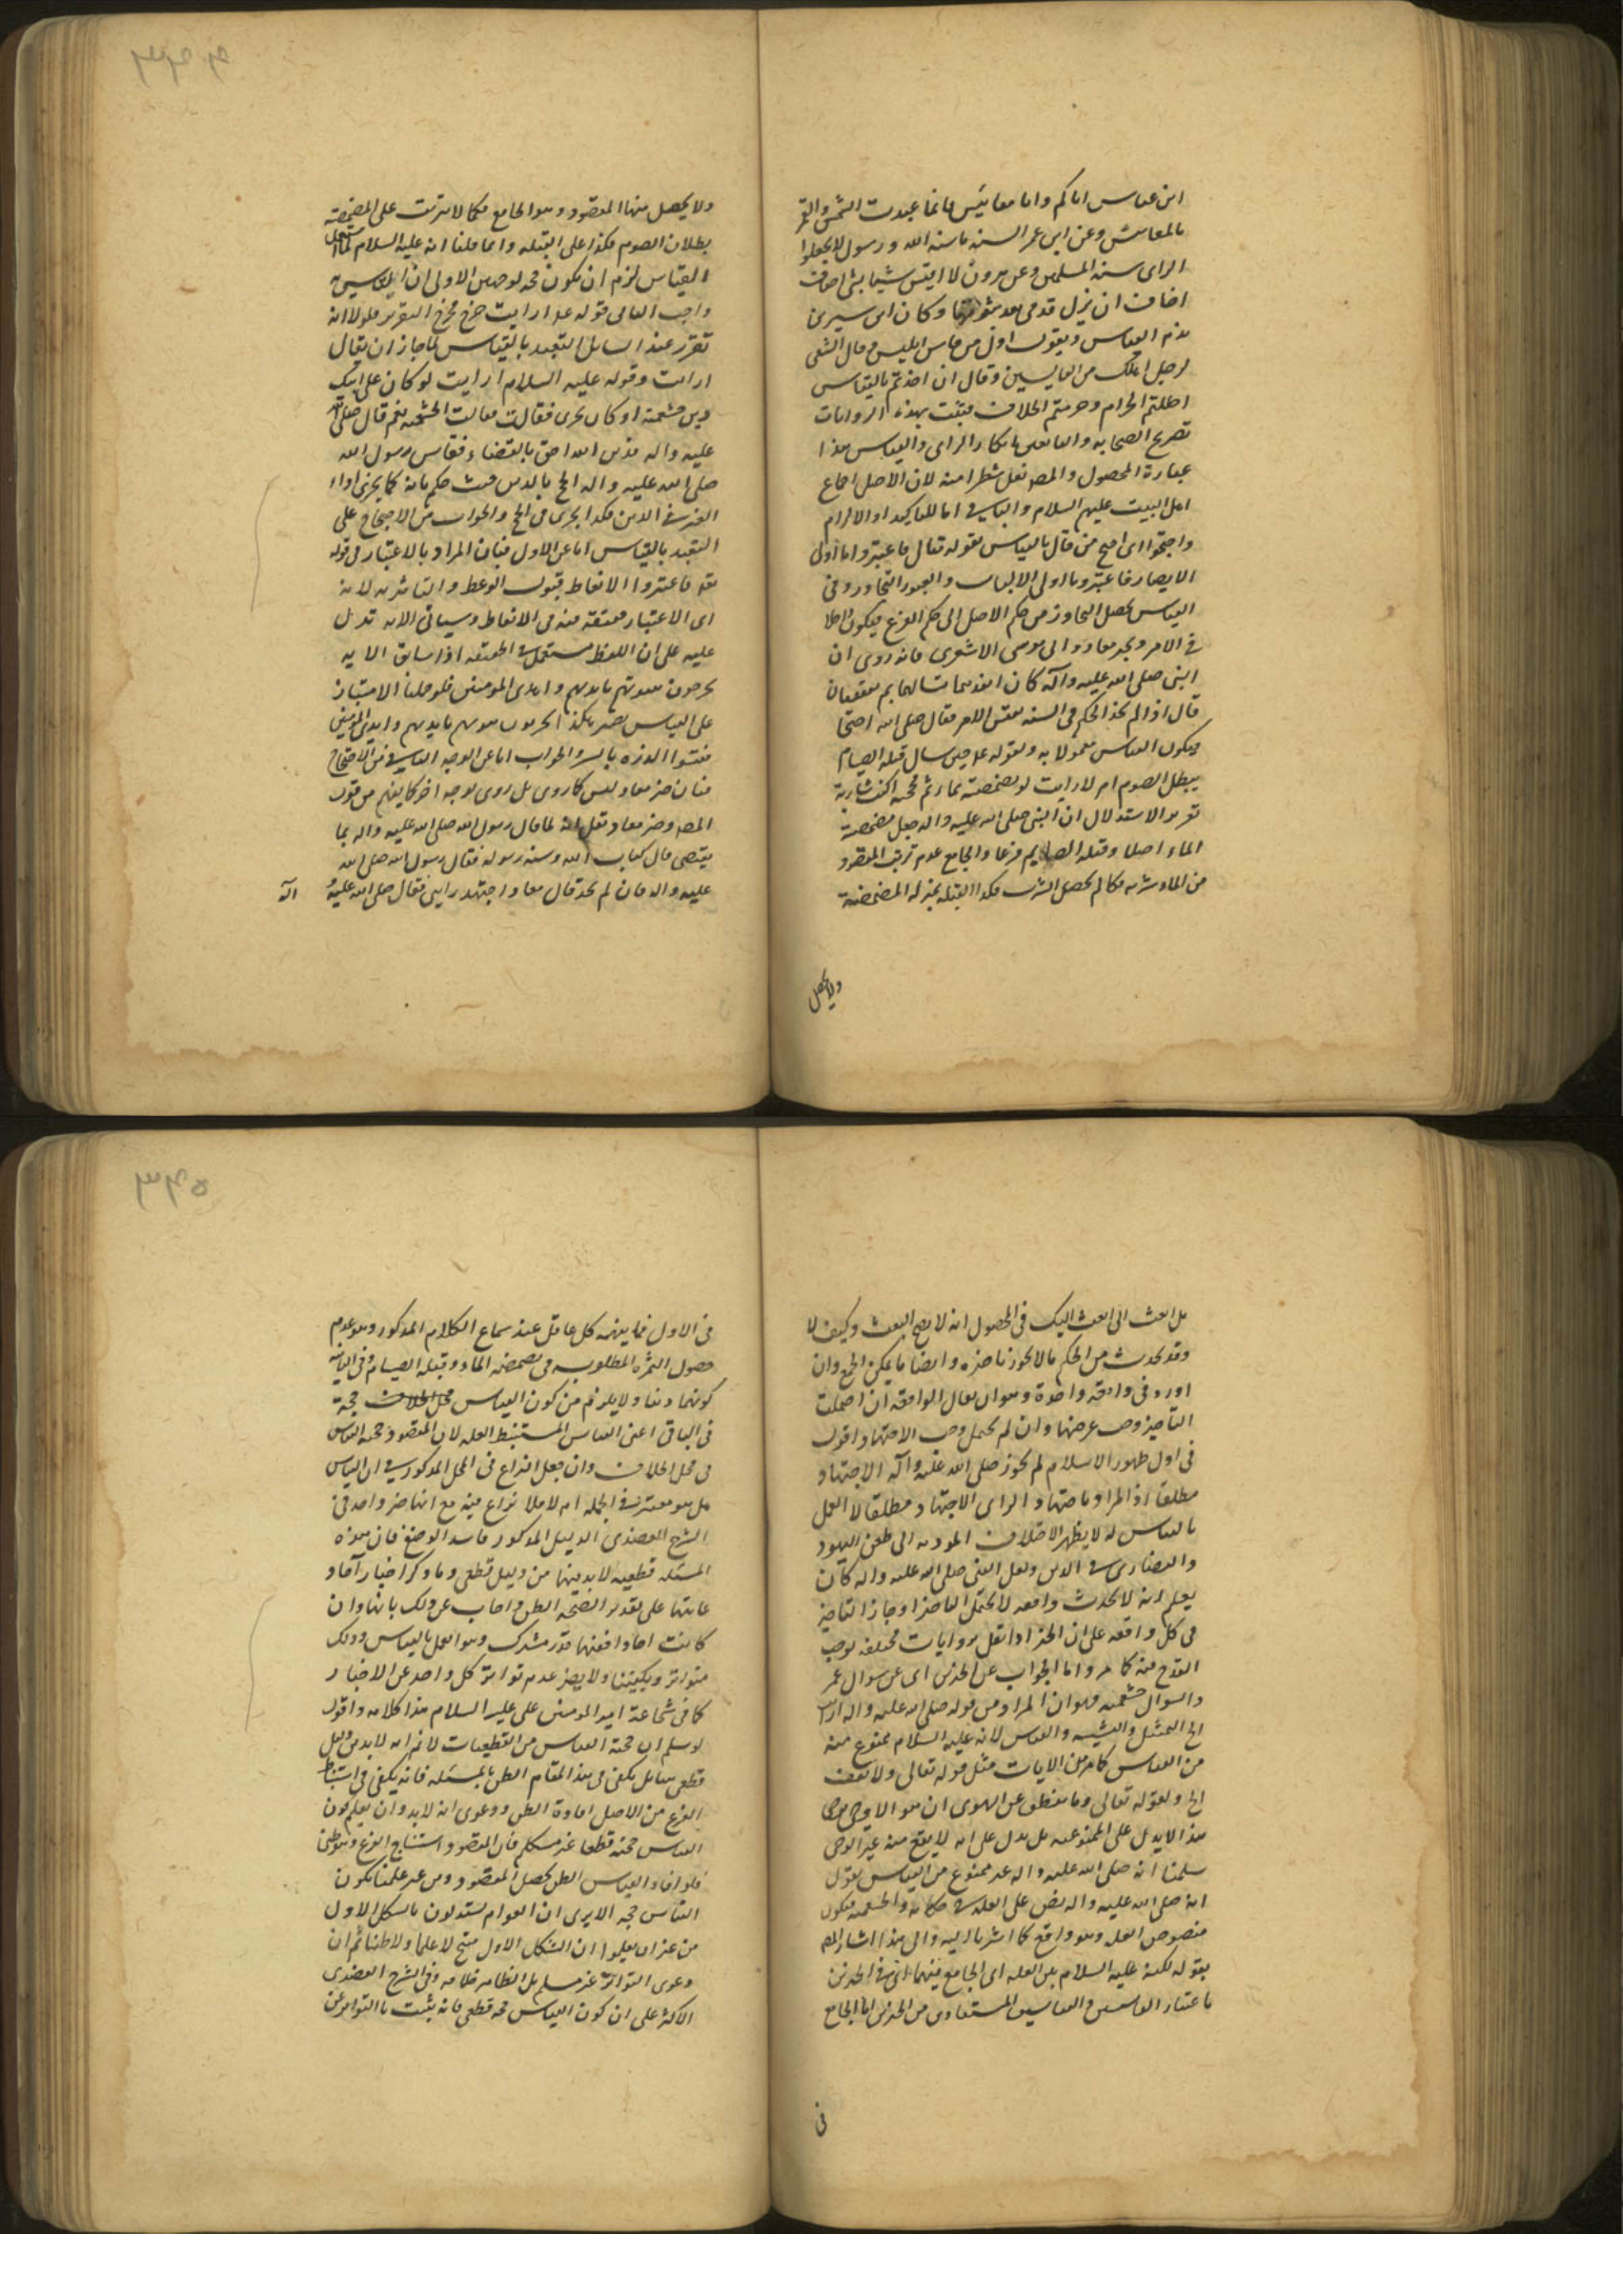 ابن عباس اياكم واما معاييس فانما عبدت الشمس والقمر
بالمقاييس وعن ابن عمر السنة ما سنه الله ورسوله لا تجعلوا
الراى سنة المسلمين وعن مسروق لا اقيس شيئا بشئ اخاف
اخاف ان يزل قدمى بعد ثبوتها وكان ابن سيرين
يذم القياس ويقول اول من قاس ابليس وقال الشعبى
لرجل لعلك من القايسين وقال ان اخذتم بالقياس
احللتم الحرام وحرمتم الحلال فثبت بهذه الروايات
تصريح الصحابه والتابعين بانكار الراى والقياس هذا
عبارة المحصول والمصـ نقل شطرا منه لان الاصل اجماع
اهل البيت عليهم السلام والباقى اما للتاكيد او الالزام
واحتجوا اى احتج من قال بالقياس بقوله تعالى فاعتبروا يا اولى
الابصار فاعتبروا يا اولى الالباب والعبور التجاوز وفى
القياس يحصل التجاوز من حكم الاصل الى حكم الفرع فيكون داخلا
فى الامر وبخبر معاذ وابى موسى الاشعرى فانه روى ان
النبى صلى الله عليه وآله كان انفذهما سالهما بم تقضيان
قال اذا لم نجد الحكم فى السنة نقيس الامر فقال صلى الله اصبتما
فيكون القياس معمولا به وبقوله ع حين سال قبلة الصيام
يبطل الصوم ام لا ارايت لو تمضمضت بماء ثم مججته اكنت شاربه
تقرير الاستدلال ان النبى صلى الله عليه واله جعل مضمضة
الماء اصلا وقبلة الصايم فرعا والجامع عدم ترتب المقصود
من الماء وشربه فكما لم يحصل الشرب فكذا القبلة بمنزله المضمضة
ولا يحصل
ولا يحصل منها المقصود وهو الجامع فكما لا يترتب على المضمضة
بطلان الصوم فكذا على القبله وانما قلنا انه عليه السلام لما استعمل
القياس لزم ان يكون حجه لوجهين الاولى ان التاسى به
واجب الثانى قوله ع ارايت خرج مخرج التقرير فلولا انه
تقرر عند السائل التعبد بالقياس لما جاز ان يقال
ارايت وقوله عليه السلام ارايت لو كان على ابيك
دين خثعمية او كان يجزى فقالت قالت الخثعمية نعم قال صلى الله
عليه واله فدين الله احق بالقضاء فقاس رسول الله
صلى الله عليه واله الحج بالدين حيث حكم بانه كما يجزى اداء
الغير فى الدين فكذا يجزى فى الحج والجواب عن الاحتجاج على
التعبد بالقياس اما عن الاول فبان المراد بالاعتبار فى قوله
تعـ فاعتبروا الاتعاظ قبول الوعظ والتاثر به لانه
اى الاعتبار حقيقة فيه فى الاتعاظ وسياق الايه تدل
عليه على ان اللفظ مستعمل فى الحقيقه اذا سابق الايه
يخربون بيوتهم بايديهم وايدى المومنين فلو حملنا الاعتبار
على القياس يصير هكذا يخربون بيوتهم بايديهم وايدى المومنين
فقيسوا الذره بالبر والجواب اما عن الوجه الثانى من الاحتجاج
فبان خبر معاذ ليس كما روى بل روى بوجه اخر كما يفهم من قول
المصـ وخبر معاذ نقل انه لما قال رسول الله صلى الله عليه واله بما
يقضى قال كتاب الله وسنة رسوله فقال رسول الله صلى الله
عليه واله فان لم تجد قال معاذ اجتهد رايى فقال صلى الله عليه وآله
بل ابعث الى ابعث اليك فى المحصول انه لا يصح البعث وكيف لا
وقد يحدث من الحكم ما لا يجوز تاخيره وايضا ما يمكن الجمع وان
اورد فى واقعه واحدة وهو ان يقال الواقعه ان احتملت
التاخير وجب عرضها وان لم تحتمل وجب الاجتهاد اقول
فى اول ظهور الاسلام لم يجوز صلى الله عليه وآله الاجتهاد
مطلقا اذ المراد باجتهاد الراى الاجتهاد مطلقا لا العمل
بالقياس له لا يظهر الاختلاف المودى الى طعن اليهود
والنصارى فى الدين ولعل النبى صلى الله عليه واله كان
يعلم انه لا يحدث واقعه لا يحتمل التاخير او جاز التاخير
فى كل واقعه على ان الخبر اذا نقل بروايات مختلفه يوجب
القدح فيه كما مر واما الجواب عن الخبرين اى عن سوال عمر
والسوال خثعمية فهو ان المراد من قوله صلى الله عليه واله ارايت
الخ التمثيل والتشبيه والقياس لانه عليه السلام ممنوع منه
من القياس كما مر من الايات مثل قوله تعالى ولا تقف
الخ ولقوله تعالى وما ينطق عن الهوى ان هو الا وحى يوحى
هذا لا يدل على الممنوعيه بل يدل على انه لا يقع منه غير الوحى
سلمنا انه صلى الله عليه واله غير ممنوع من القياس نقول
انه صلى الله عليه واله نص على العله فى حكايه والخثعميه فيكون
منصوص العله وهو واقع كما اشرنا اليه والى هذا اشار المصـ
بقوله لكنه عليه السلام بين العله اى الجامع فيهما اى فى الخبرين
باعتبار القياسين والقياسين المستفادين من الخبرين اما الجامع
فى
فى الاول فما يفهمه كل عاقل عند سماع الكلام المذكور وهو عدم
حصول الثمره المطلوبه فى مضمضة الماء وقبله الصيام وفى الثانيه
كونهما دينا ولا يلزم من كون القياس محل الخلاف حجة
فى الباقى اعنى القياس المستنبط العله لان المقصود حجية القياس
فى محل الخلاف وان جعل النزاع فى المحل المذكور فى ان القياس
هل هو معتبر فى الجمله ام لا فلا نزاع فيه مع انها خبر واحد فى
الشرح العضدى الدليل المذكور فاسد الوضع فان هذه
المسئله قطعيه لابد فيها من دليل قطعى وما ذكر اخبار آحاد
غايتها على تقدير الصحة الظن واجاب عن ذلك بانها وان
كانت احادا فبينها قدر مشترك وهو العمل بالقياس وذلك
متواتر ويكفينا ولا يضر عدم تواتر كل واحد عن الاخبار
كما فى شجاعة امير المومنين على عليه السلام هذا كلامه واقول
لو سلم ان حجية القياس من القطعيات لا نم انه لابد من دليل
قطعى بل يكفى فى هذا المقام الظن بالمسئله فانه يكفى فى استنباط
الفرع من الاصل افادة الظن ودعوى انه لابد وان يعلم كون
القياس حجة قطعا غير مسلم فان المقصود استنتاج الفرع وهو ظنى
فلو افاد القياس الظن يحصل المقصود ومن غير علمنا بكون
القياس حجه الا يرى ان العوام يستدلون بالشكل الاول
من غير ان يعلموا ان الشكل الاول منتج لا علما ولا ظنا ثم ان
دعوى التواتر غير مسلم بل الظاهر خلافه وفى الشرح العضدى
الاكثر على ان كون القياس حجه قطعى فانه يثبت بالتواتر عن